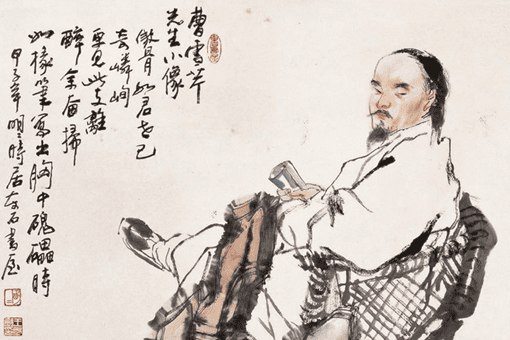 曹雪芹
先生小像
傲骨如君世已
奇嶙峋
更見此支離
醉余奮掃
如椽筆寫出胸中磈礧時
甲子年明明時居友石書屋